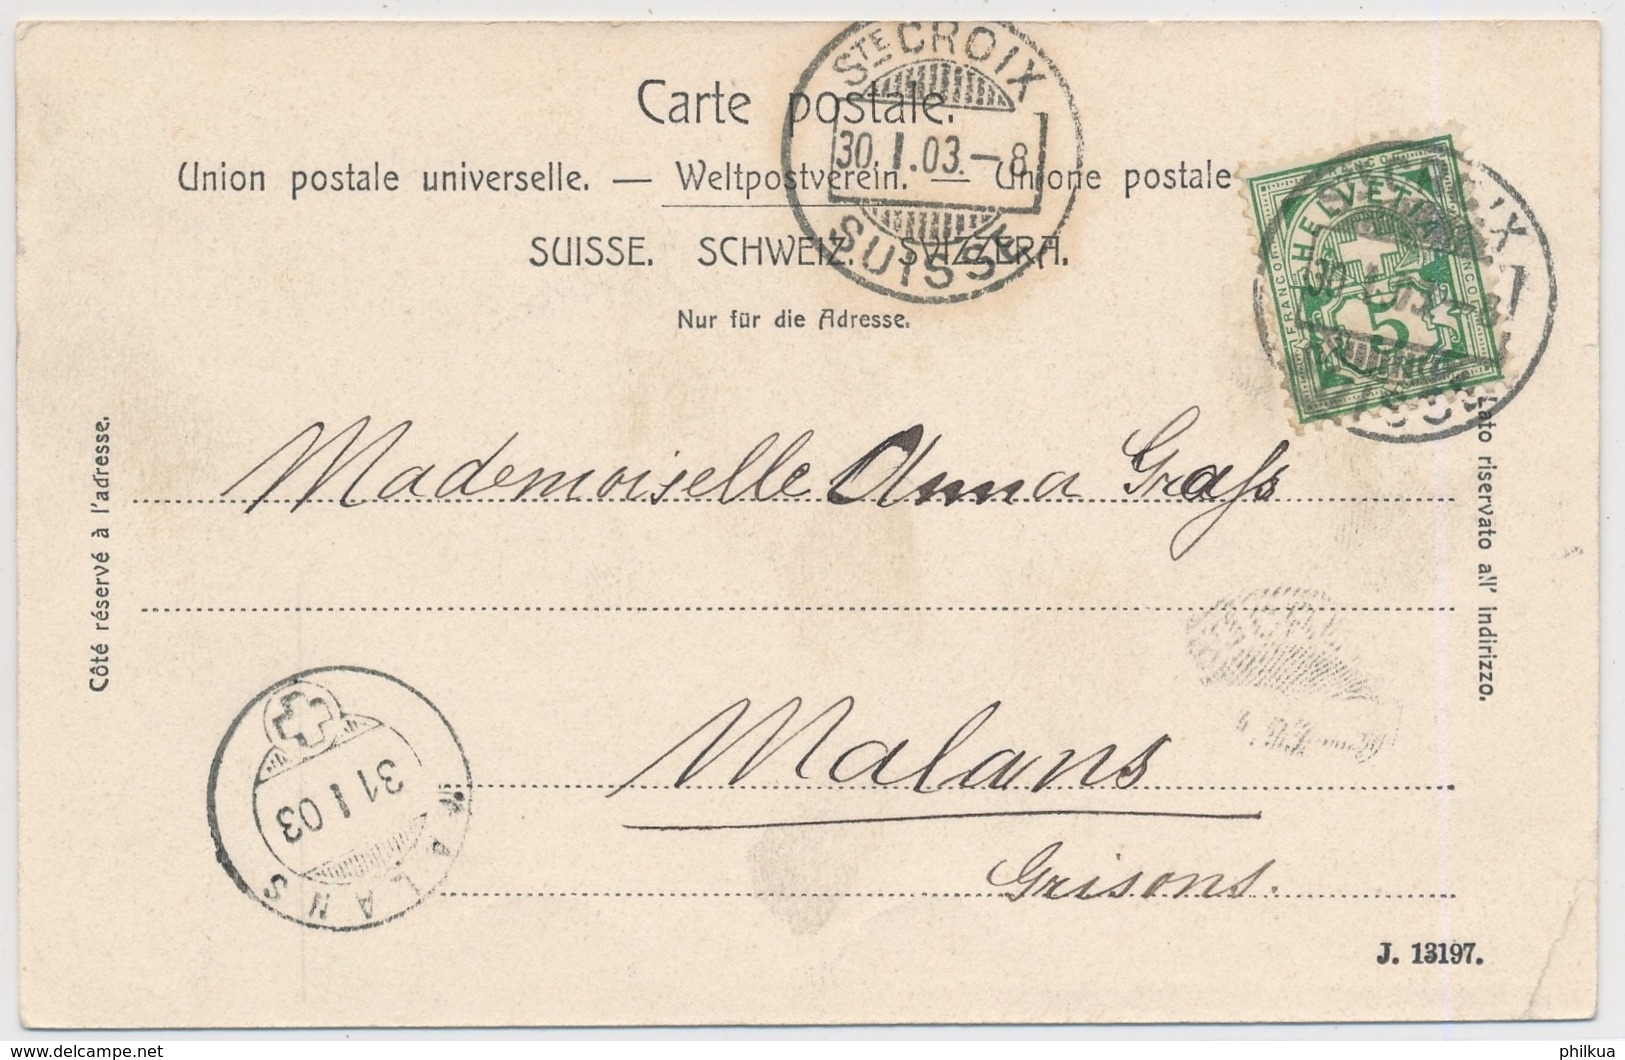 Carte postale.
Union postale universelle. — Weltpostverein. — Unione postale
SUISSE. SCHWEIZ. SVIZZERA.
Nur für die Adresse.
STE CROIX
30.I.03.–8
SUISSE
HELVETIA
FRANCO
5
Côté réservé à l'adresse.
Lato riservato all' indirizzo.
Mademoiselle Anna Grass
Malans
Grisons.
MALANS
31 I 03
J. 13197.
www.delcampe.net
philkua